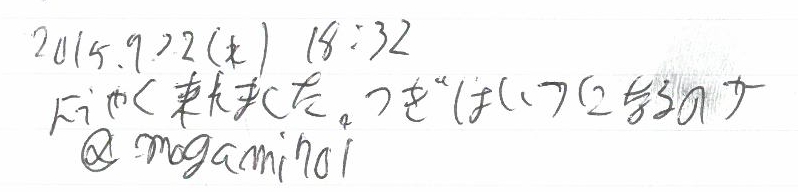 2015.9.22(火) 18:32
ようやく来れました。つぎはいつになるのか
@mogaminoi